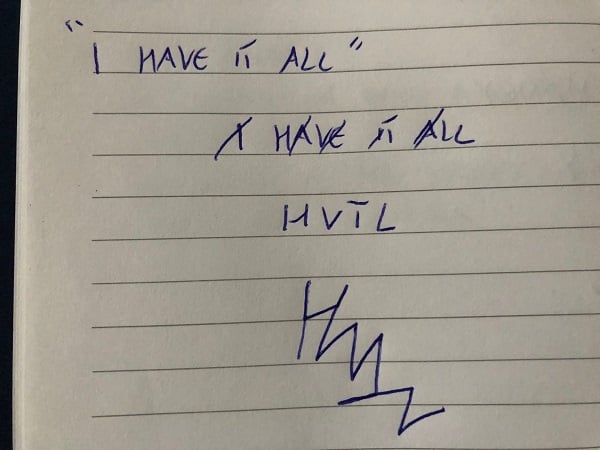 "I HAVE IT ALL"
I HAVE IT ALL
HVTL